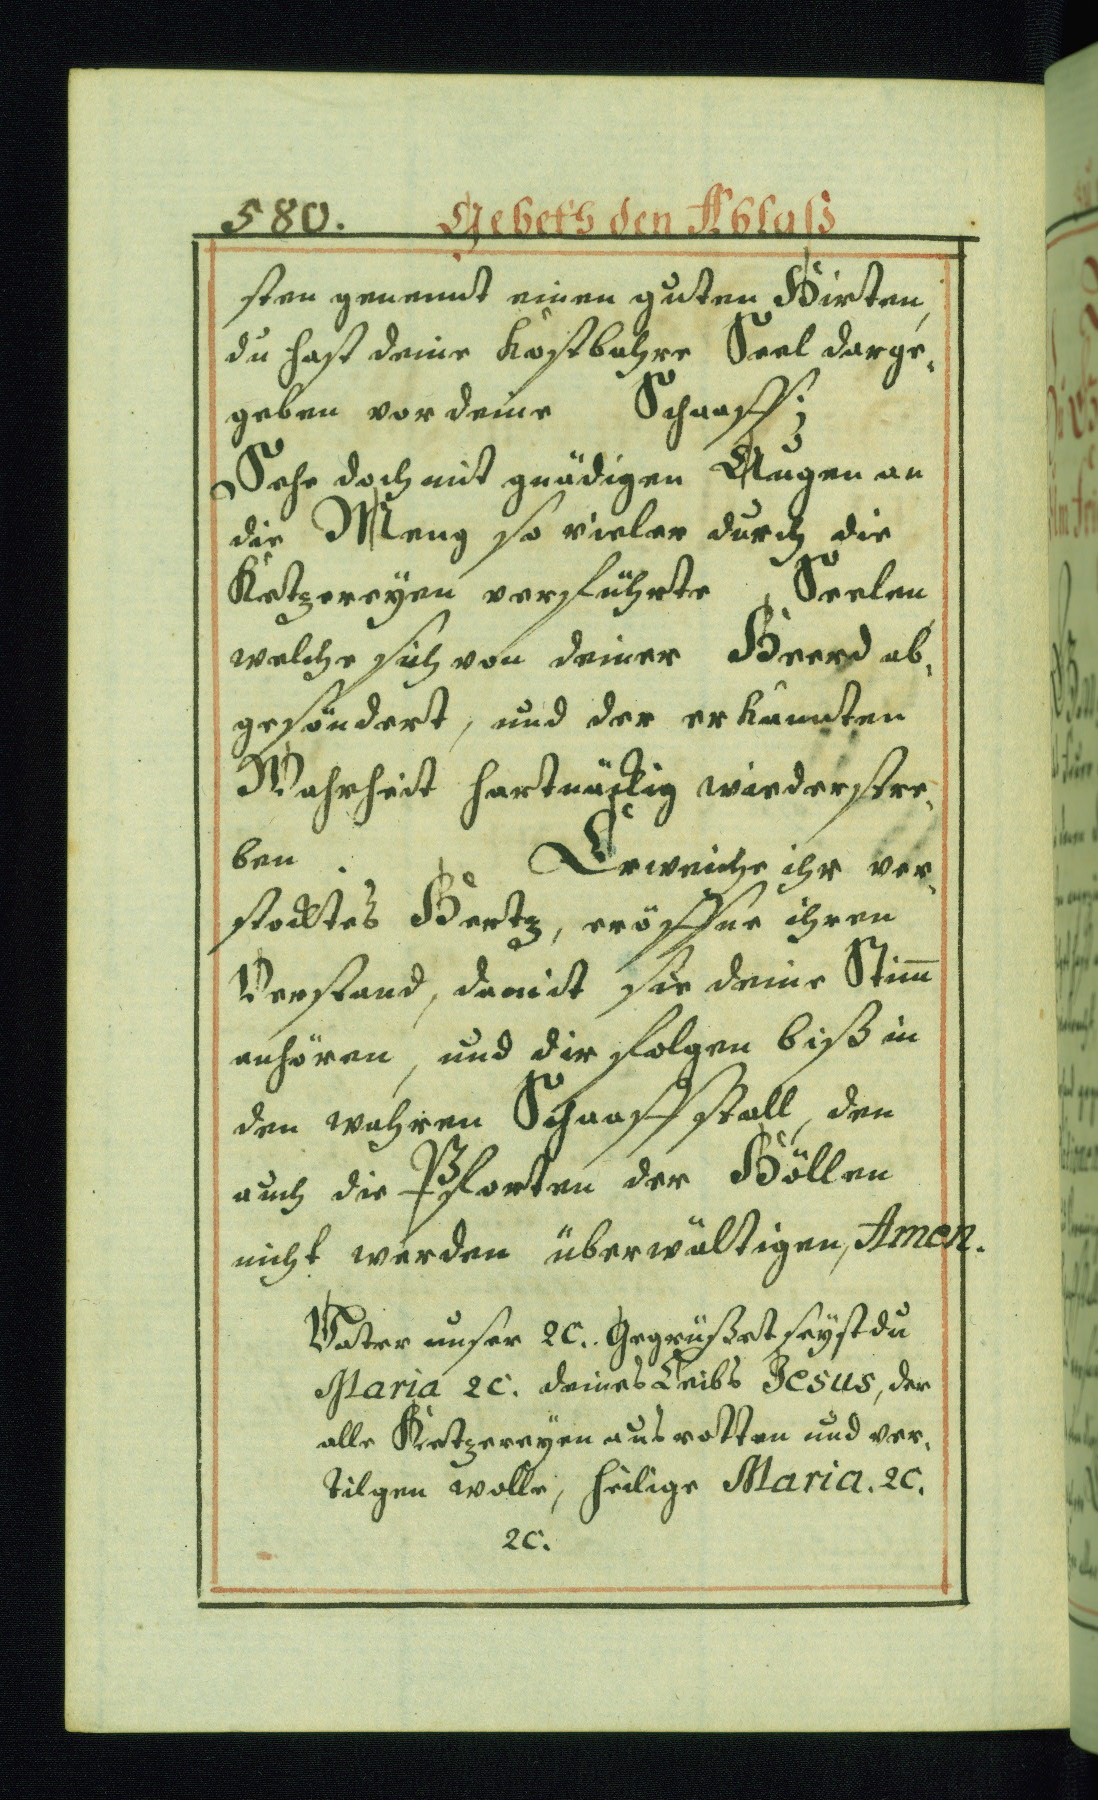 580. Gebeth den Ablaß
sten genennt einen guten Hirten,
du hast deine kostbahre Seel darge,
geben vor deine Schaaff:
Sehe doch mit gnädigen Augen an
die Meng so vieler durch die
Ketzereyen verführte Seelen,
welche sich von deiner Heerd ab,
gesöndert, und der erkannten
Wahrheit hartnäckig wiederstre,
ben. Erweiche ihr ver,
stocktes Hertz, eröffne ihren
Verstand, damit sie deine Stim̅
anhören, und dir folgen biß in
den wahren Schaaffstall, den
auch die Pforten der Höllen
nicht werden überwältigen, Amen.
Vater unser 2c. Gegrüßet seyst du
Maria 2c. deines Leibs Jesus, der
alle Ketzereyen ausrotten und ver,
tilgen wolle, heilige Maria. 2c.
2c.